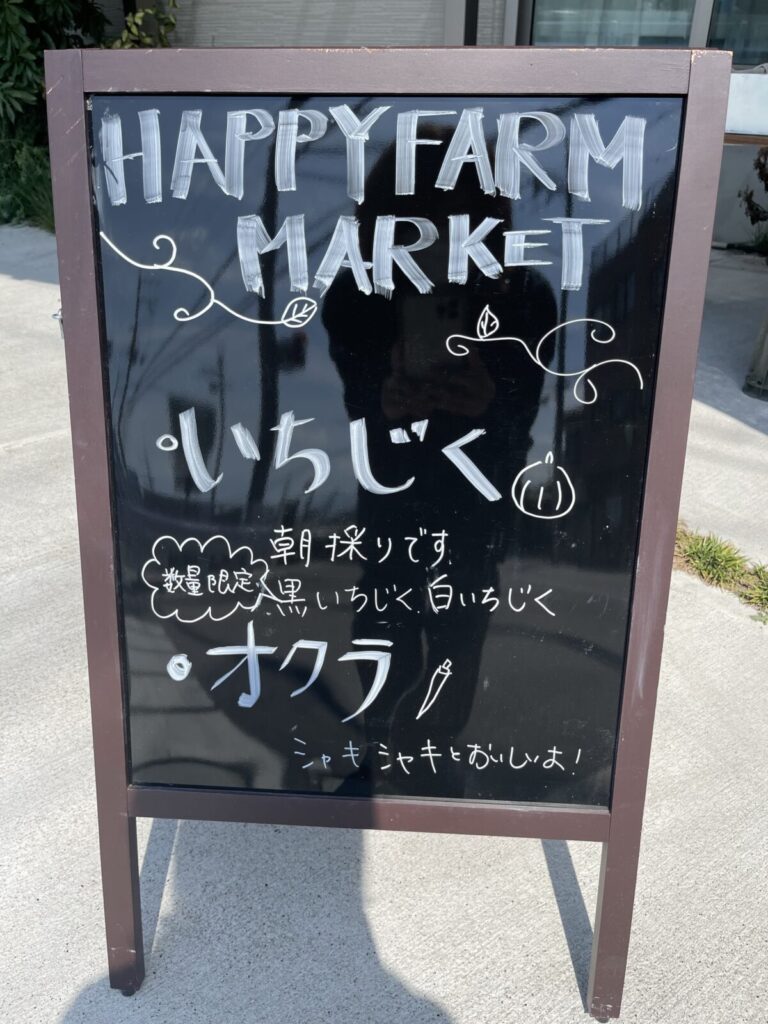 HAPPY FARM
MARKET
・いちじく
朝採りです
数量限定
黒いちじく 白いちじく
・オクラ
シャキシャキとおいしいよ!